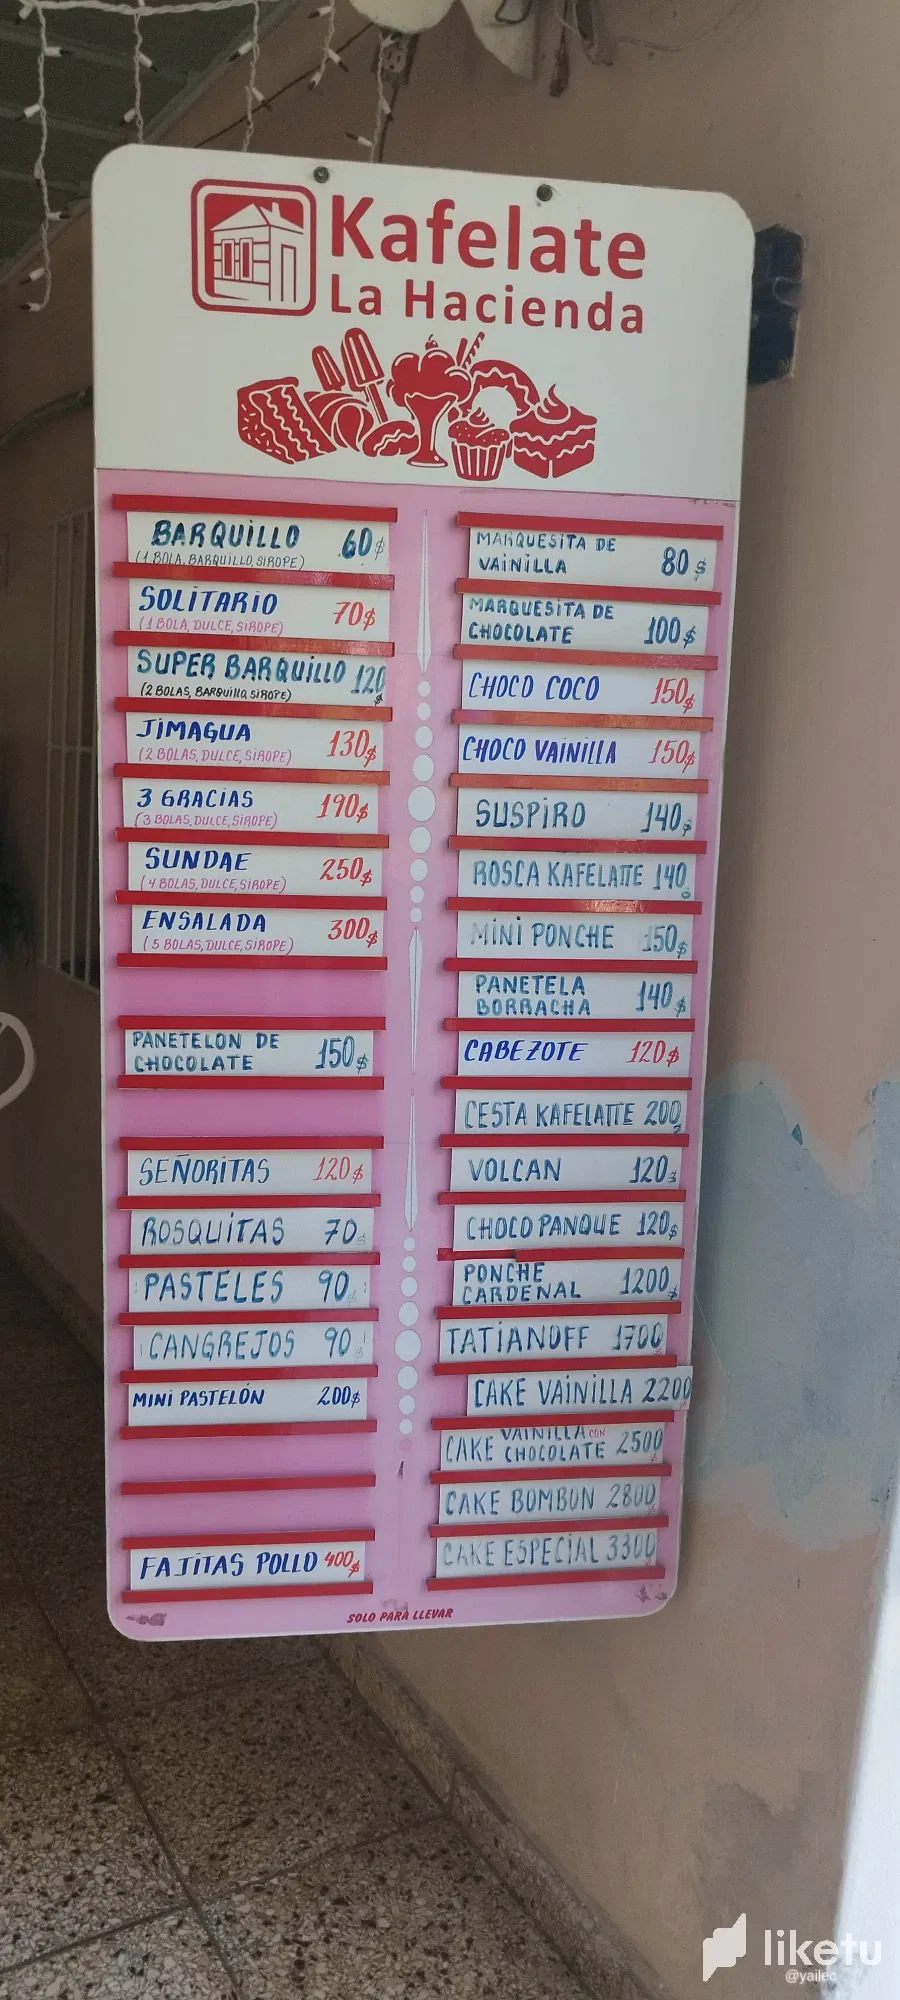 Kafelate
La Hacienda
BARQUILLO 60$
(1 BOLA, BARQUILLO, SIROPE)
SOLITARIO 70$
(1 BOLA, DULCE, SIROPE)
SUPER BARQUILLO 120$
(2 BOLAS, BARQUILLO, SIROPE)
JIMAGUA 130$
(2 BOLAS, DULCE, SIROPE)
3 GRACIAS 190$
(3 BOLAS, DULCE, SIROPE)
SUNDAE 250$
(4 BOLAS, DULCE, SIROPE)
ENSALADA 300$
(5 BOLAS, DULCE, SIROPE)
PANETELON DE
CHOCOLATE 150$
SEÑORITAS 120$
ROSQUITAS 70$
PASTELES 90
CANGREJOS 90
MINI PASTELÓN 200$
FAJITAS POLLO 400$
MARQUESITA DE
VAINILLA 80$
MARQUESITA DE
CHOCOLATE 100$
CHOCO COCO 150$
CHOCO VAINILLA 150$
SUSPIRO 140$
ROSCA KAFELATTE 140
MINI PONCHE 150$
PANETELA
BORRACHA 140$
CABEZOTE 120$
CESTA KAFELATTE 200
VOLCAN 120$
CHOCO PANQUE 120$
PONCHE
CARDENAL 1200$
TATIANOFF 1700
CAKE VAINILLA 2200
CAKE VAINILLA CON
CHOCOLATE 2500
CAKE BOMBON 2800
CAKE ESPECIAL 3300
SOLO PARA LLEVAR
liketu
@yailec